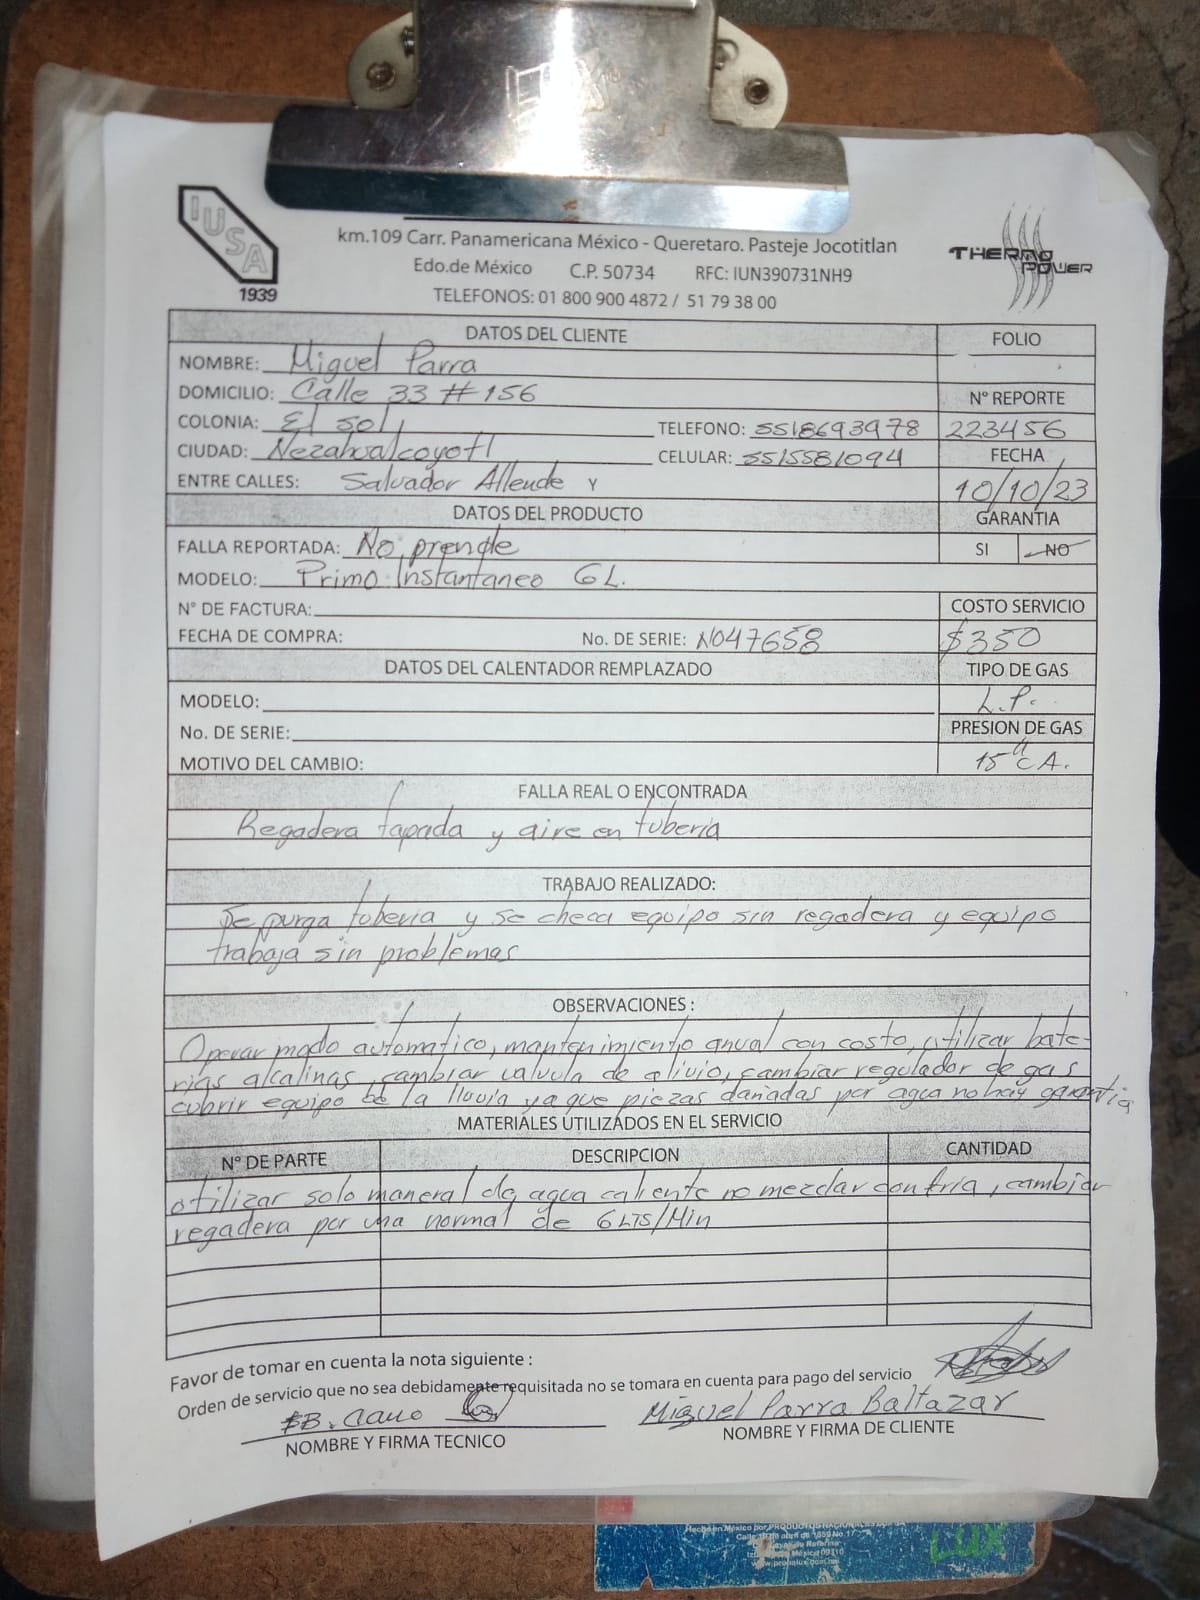 IUSA
1939
km.109 Carr. Panamericana México - Queretaro. Pasteje Jocotitlan
Edo.de México C.P. 50734 RFC: IUN390731NH9
TELEFONOS: 01 800 900 4872 / 51 79 38 00
THERMO POWER
DATOS DEL CLIENTE
FOLIO
NOMBRE: Miguel Parra
DOMICILIO: Calle 33 # 156
N° REPORTE
COLONIA: El sol
TELEFONO: 5518693978
223456
CIUDAD: Nezahualcoyotl
CELULAR: 5515581094
FECHA
ENTRE CALLES: Salvador Allende Y
10/10/23
DATOS DEL PRODUCTO
GARANTIA
FALLA REPORTADA: No prende
SI NO
MODELO: Primo Instantaneo 6L.
N° DE FACTURA:
COSTO SERVICIO
FECHA DE COMPRA: No. DE SERIE: N047658
$350
DATOS DEL CALENTADOR REMPLAZADO
TIPO DE GAS
MODELO:
L.P.
No. DE SERIE:
PRESION DE GAS
MOTIVO DEL CAMBIO:
15" CA.
FALLA REAL O ENCONTRADA
Regadera tapada y aire en tuberia
TRABAJO REALIZADO:
Se purga tuberia y se checa equipo sin regadera y equipo
trabaja sin problemas
OBSERVACIONES :
Operar modo automatico, mantenimiento anual con costo, utilizar bate-
rias alcalinas, cambiar valvula de alivio, cambiar regulador de gas
cubrir equipo de la lluvia ya que piezas dañadas por agua no hay garantia
MATERIALES UTILIZADOS EN EL SERVICIO
N° DE PARTE DESCRIPCION CANTIDAD
utilizar solo maneral de agua caliente no mezclar con fria, cambiar
regadera por una normal de 6 LTS/Min
Favor de tomar en cuenta la nota siguiente :
Orden de servicio que no sea debidamente requisitada no se tomara en cuenta para pago del servicio
Miguel Parra Baltazar
NOMBRE Y FIRMA TECNICO
NOMBRE Y FIRMA DE CLIENTE
Hecho en México por PRODUCTOS NACIONALES
LUX